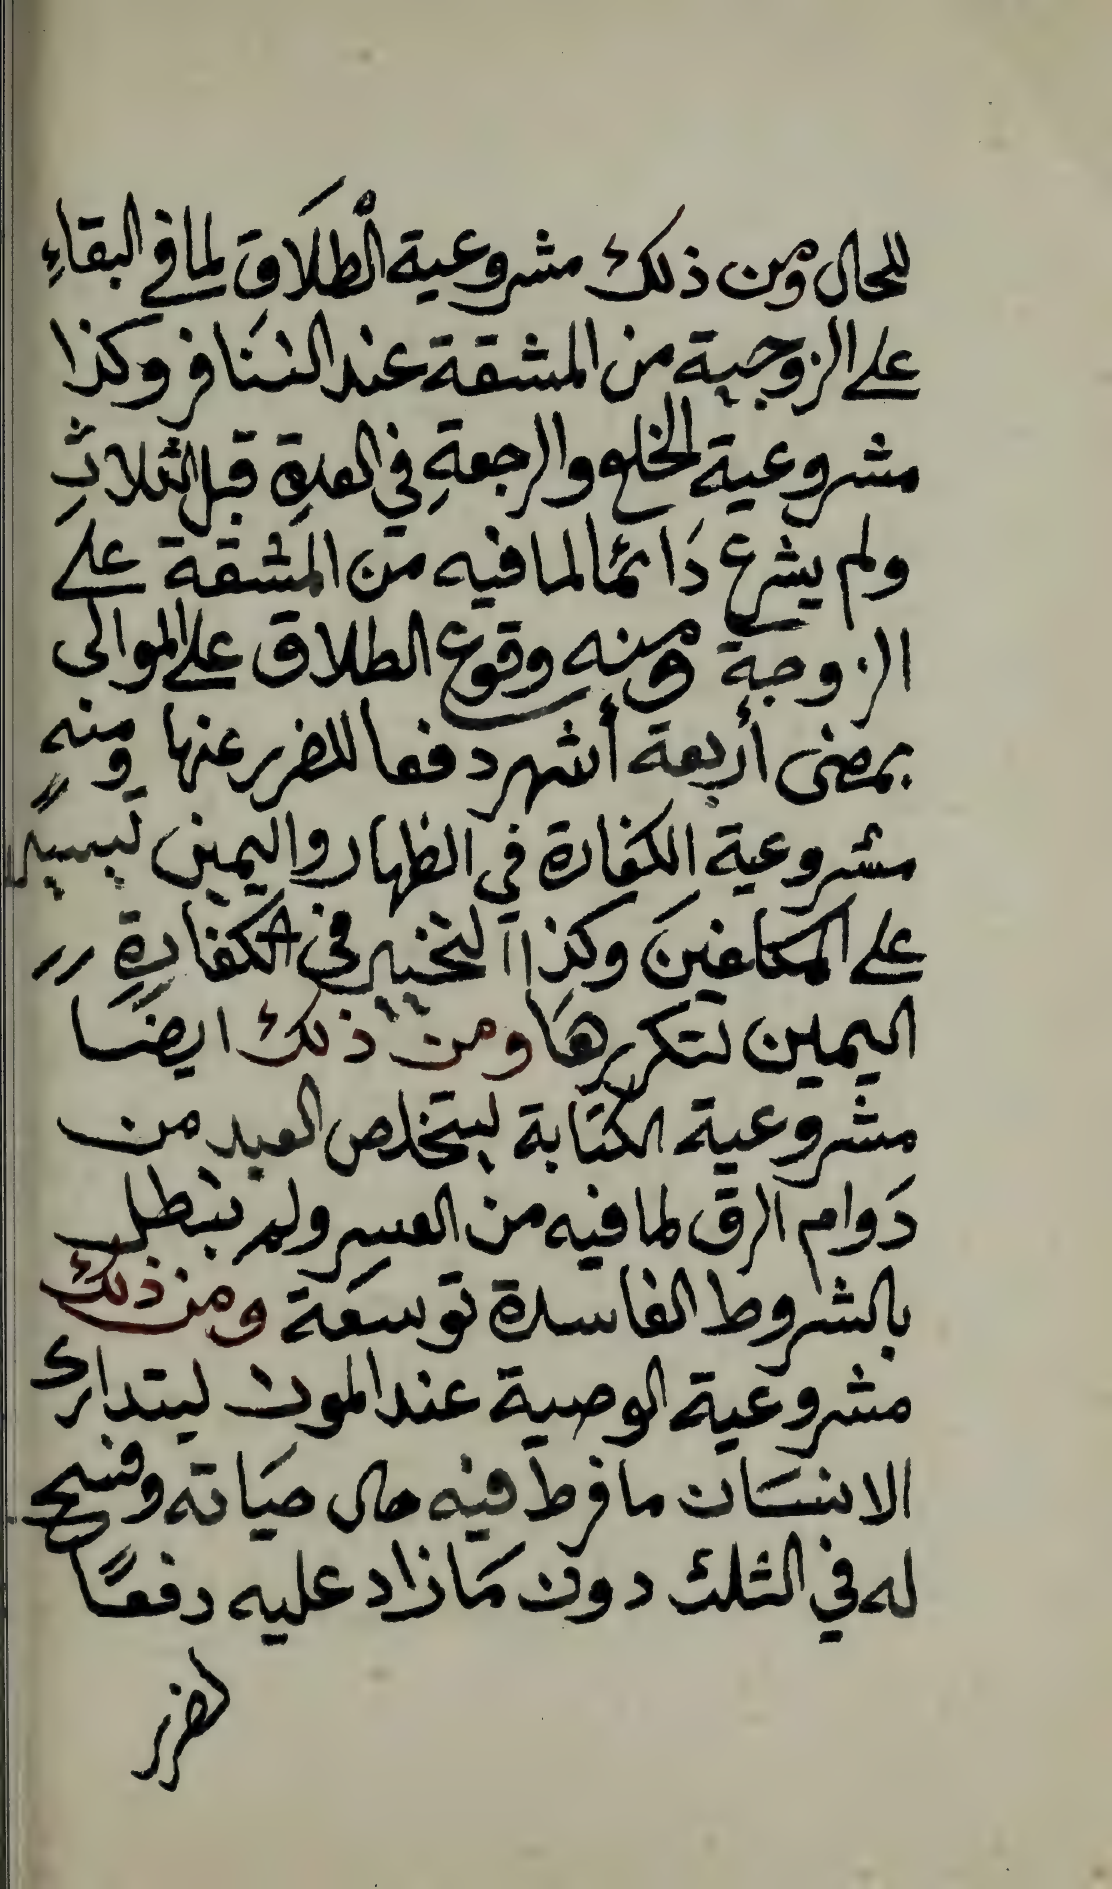 للحال ومن ذلك مشروعية الْطلَاق لما في البقاءِ
على الزوجية من المشقة عند التنَافر وكذا
مشروعية الخلع والرجعةِ في العدةِ قبل الثلاثِ
ولم يشرع دَائما لما فيه من المشقة على
الزوجة ومنه وقوع الطلاق على الموالى
بمضى أربعة أشهر دفعا للضرر عنها ومنه
مشروعية الكفارة في الظهار واليمين تيسيرا
على المكلفينَ وكذا التخيير في الكفارةِ
اليمين لتكررهَا ومن ذلك ايضًا
مشروعية الكتَابة ليتخلص العبد من
دَوام الرق لما فيه من العسرِ ولم يبطل
بالشروط الفاسدة توسعَة ومن ذلك
مشروعية الوصية عند الموت ليتدارك
الانسَان ما فرط فيه حال حيَاته وفسح
له في الثلث دون مَا زاد عليه دفعًا
لضرر